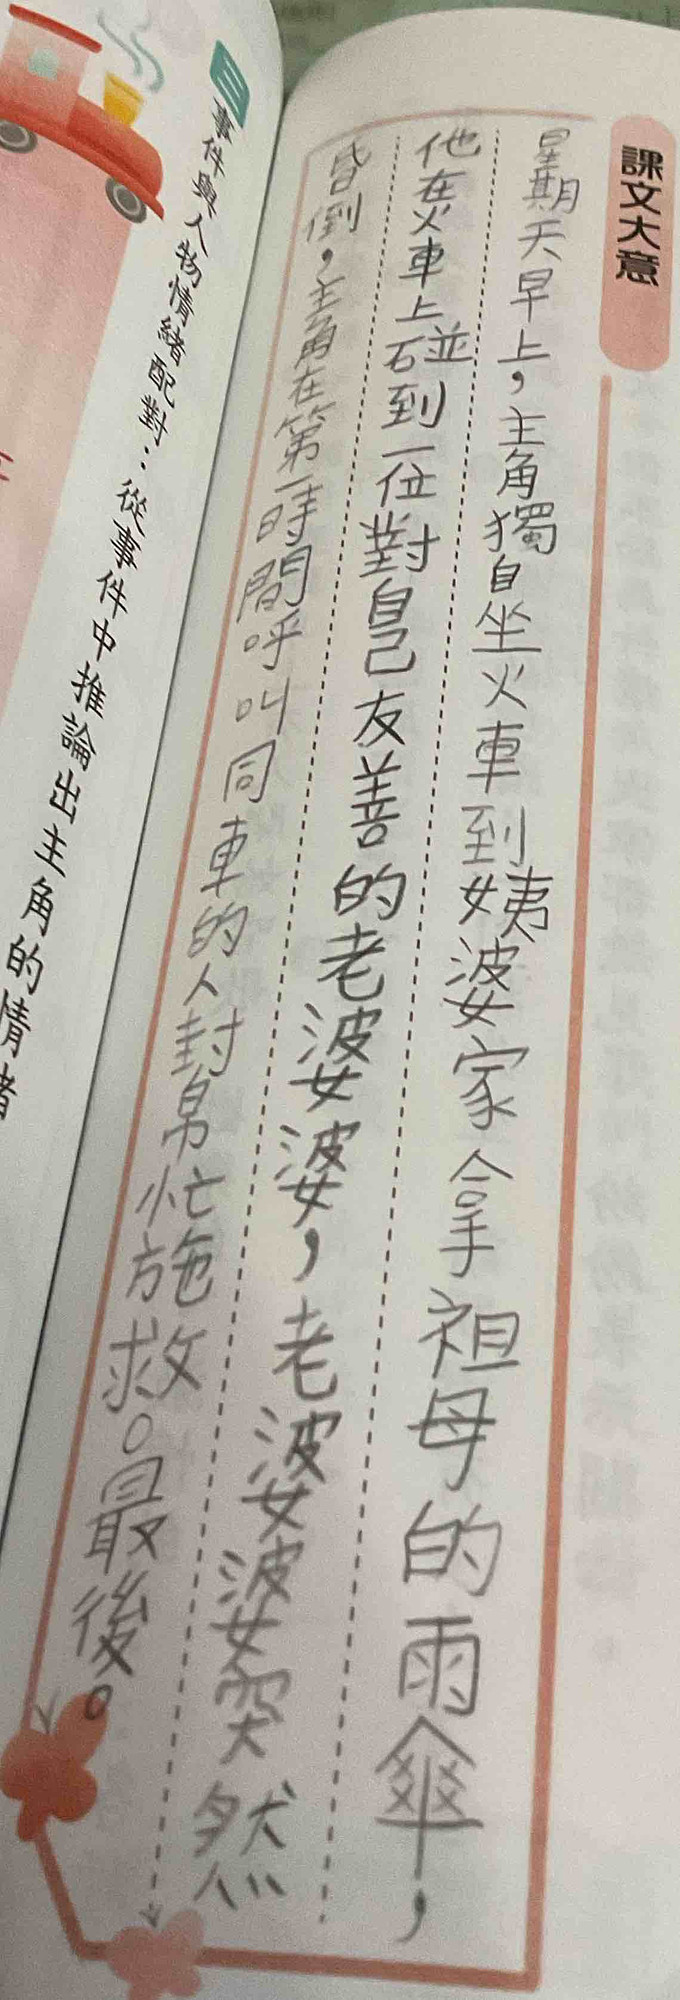 課文大意
星期天早上，主角獨自坐火車到姨婆家拿祖母的雨傘，
他在火車上碰到一位對自己友善的老婆婆，老婆婆突然
昏倒，主角在第一時間呼叫同車的人封帛忙施救。最後。
事件與人物情緒配對：從事件中推論出主角的情緒